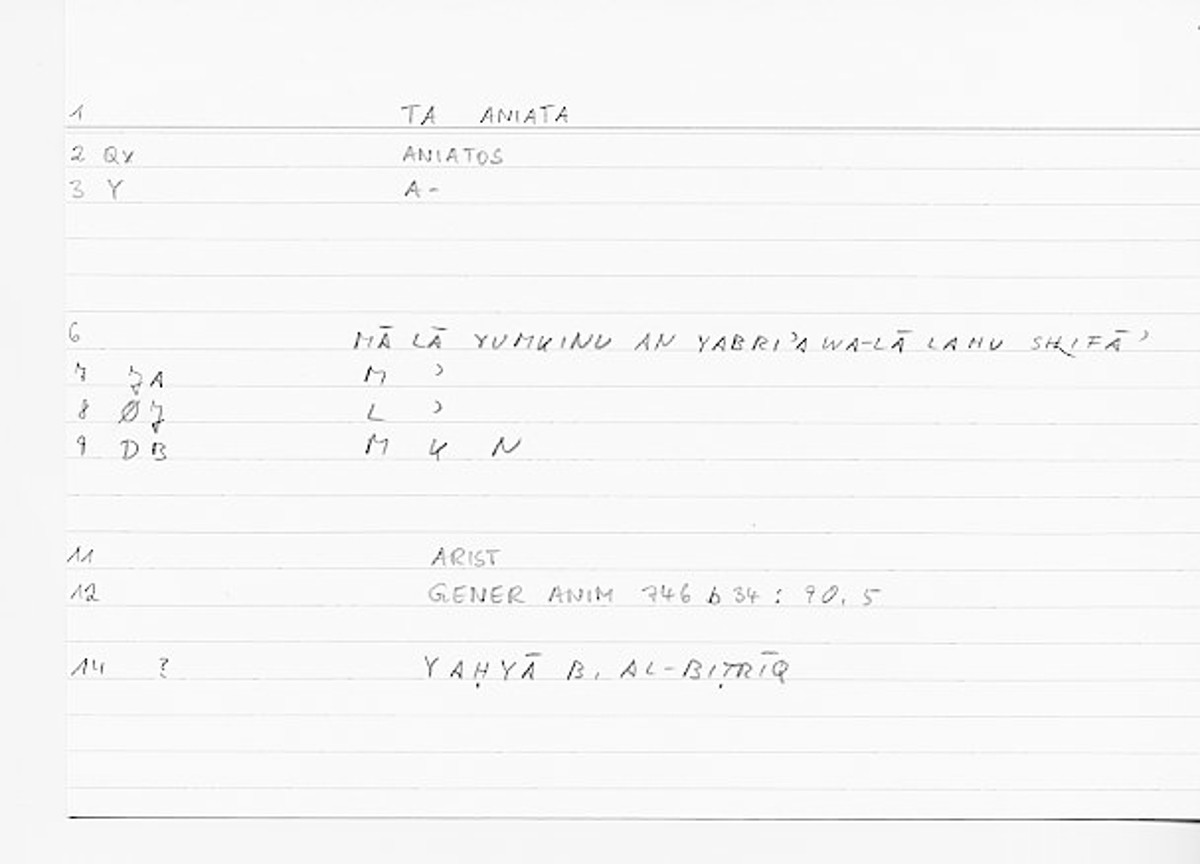 1 TA ANIATA
2 Qx ANIATOS
3 Y A-
6 MĀ LĀ YUMKINU AN YABRI'A WA-LĀ LAHU SHIFĀ'
7 ȜA M '
8 ØȜ L '
9 DB M K N
11 ARIST
12 GENER ANIM 746 b 34 : 90.5
14 ? YAḤYĀ B. AL-BIṬRĪQ